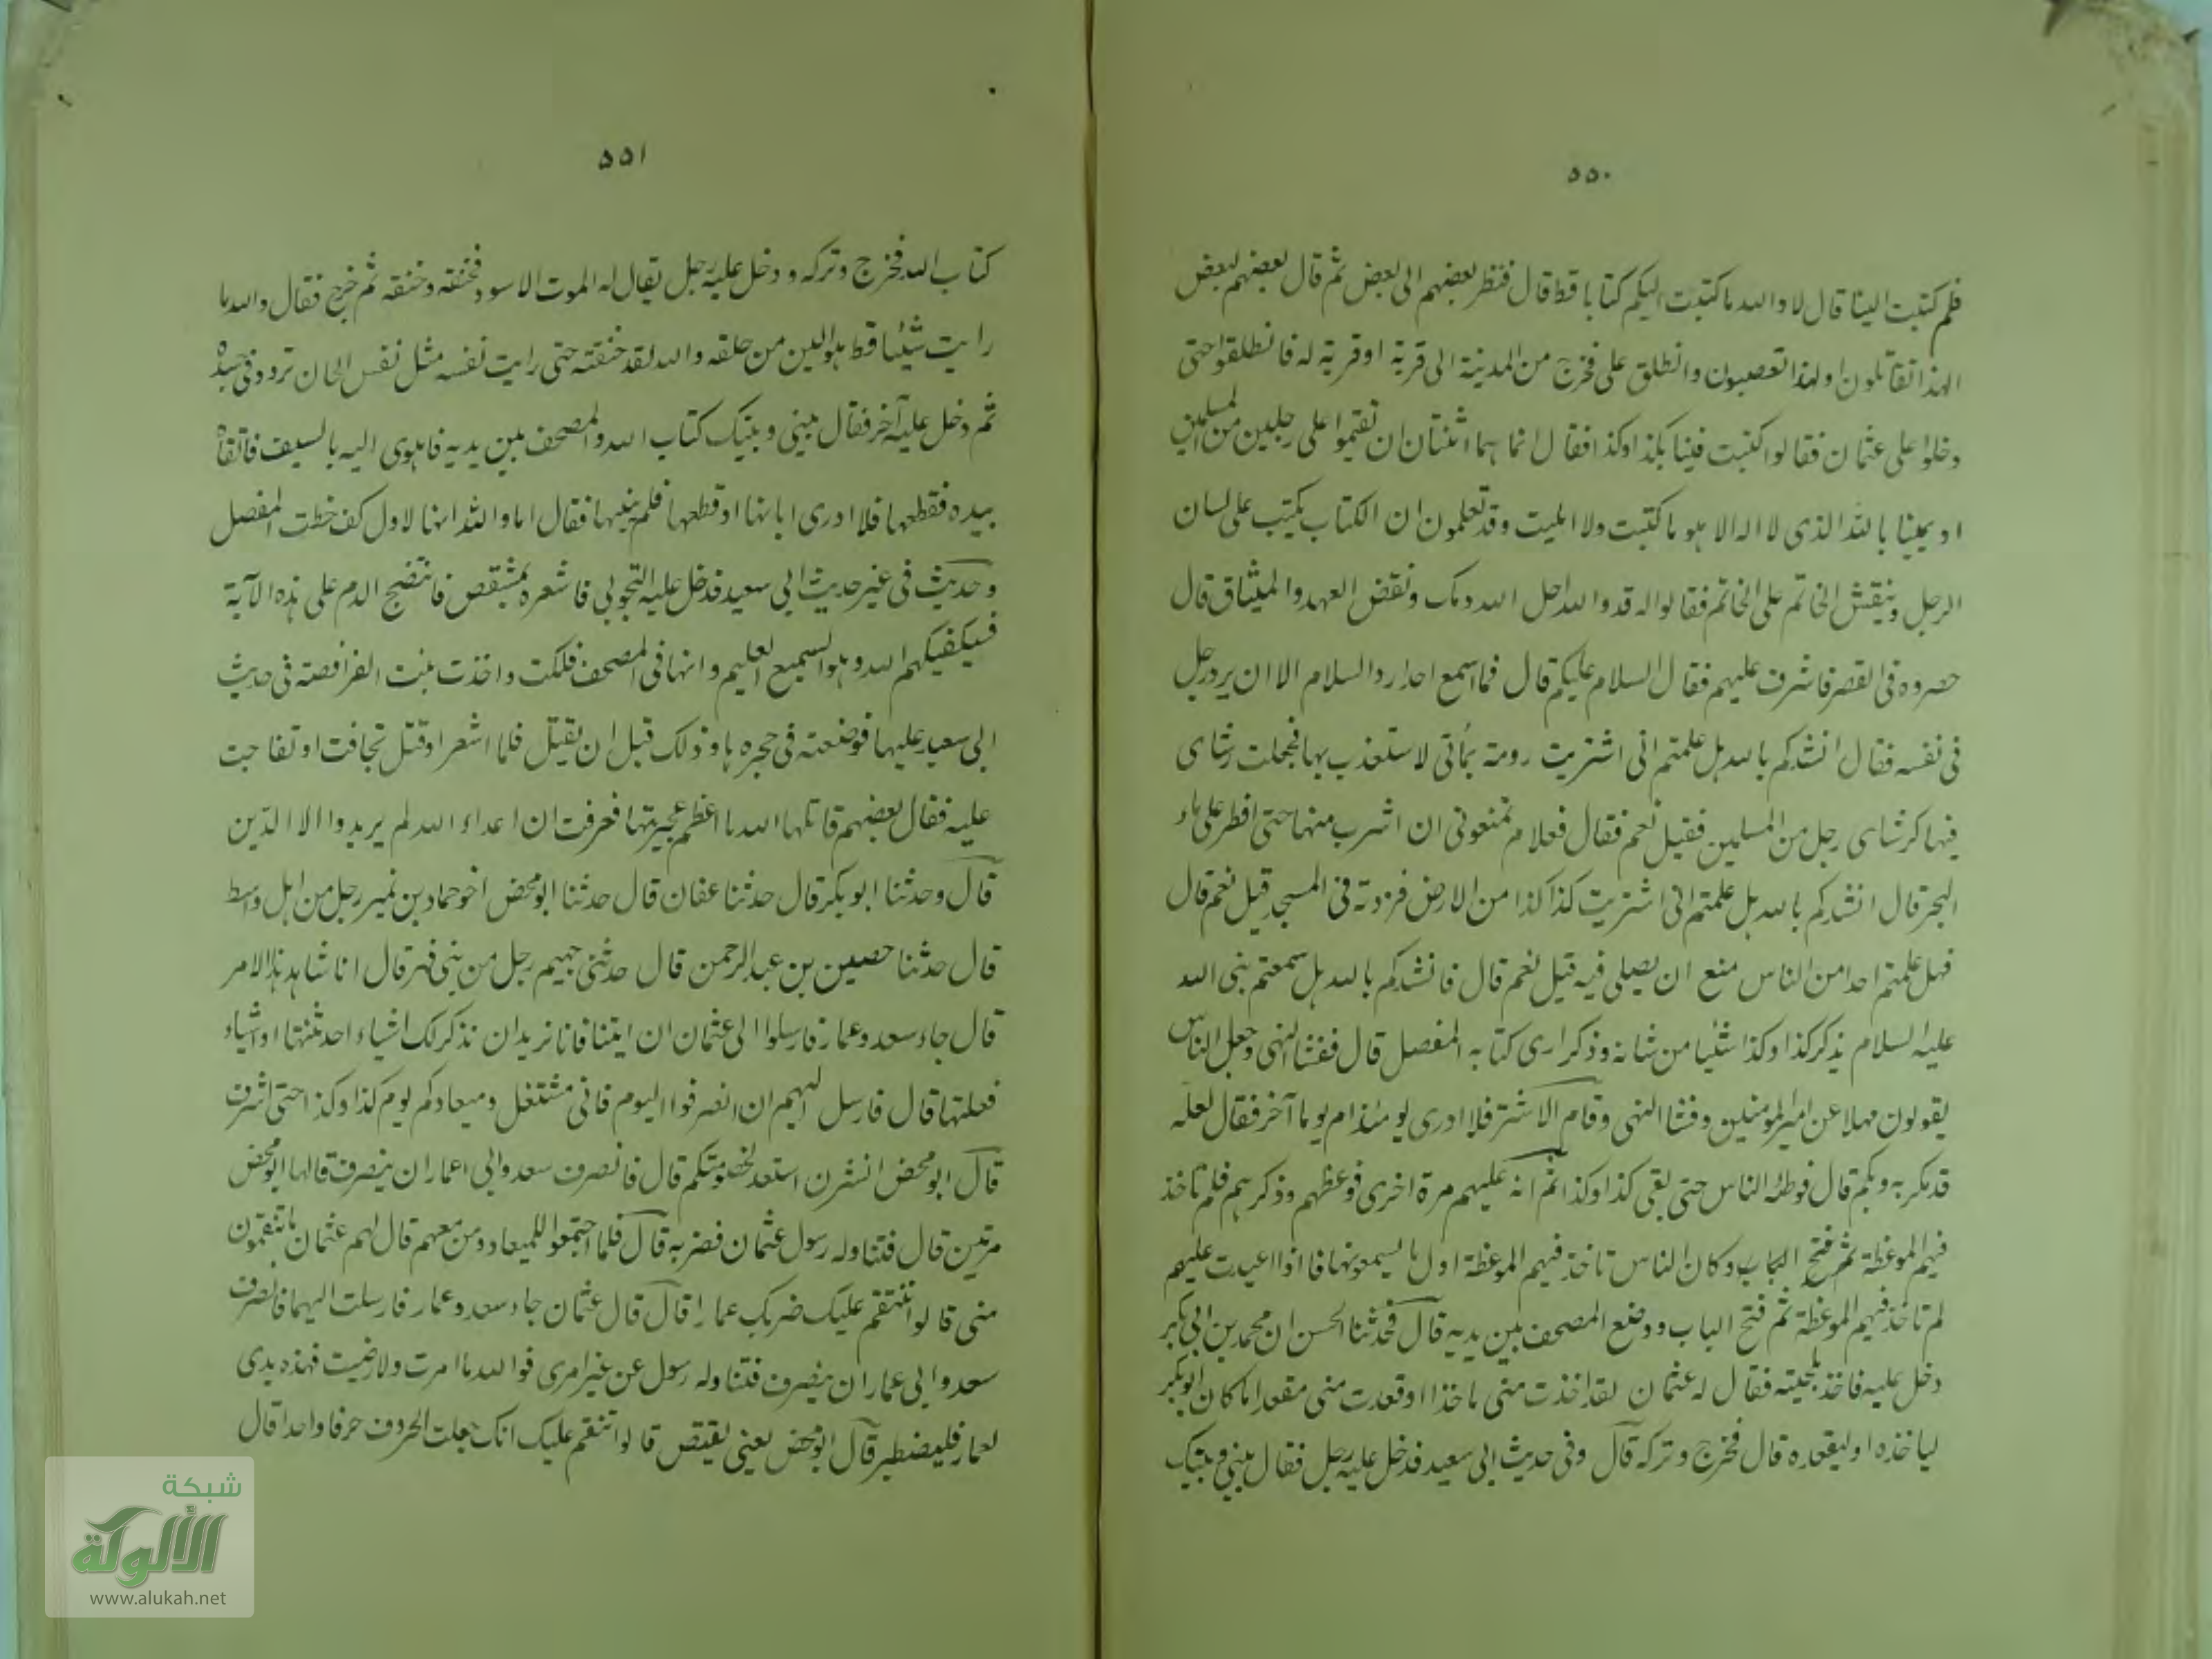 ٥٥٠
فلم كتبت الينا قال لا والله ما كتبت اليكم كتابا قط قال فنظر بعضهم الى بعض ثم قال بعضهم لبعض
الهذا تقاتلون او لهذا تغضبون وانطلق على فخرج من المدينة الى قرية او قرية له فانطلقوا حتى
دخلوا على عثمان فقالوا كتبت فينا بكذا وكذا فقال انما هما اثنتان ان تقيموا على رجلين من المسلمين
او يمينا بالله الذى لا اله الا هو ما كتبت ولا امليت وقد تعلمون ان الكتاب يكتب على لسان
الرجل وينقش الخاتم على الخاتم فقالوا له قد والله احل الله دمك ونقض العهد والميثاق قال
حصروه فى القصر فاشرف عليهم فقال السلام عليكم قال فما اسمع احدا رد السلام الا ان يرد رجل
فى نفسه فقال انشدكم بالله هل علمتم انى اشتريت رومة بمأتى لاستعذب بها فجعلت رشاى
فيها كرشاى رجل من المسلمين فقيل نعم فقال فعلام تمنعونى ان اشرب منها حتى افطر على ماء
البحر قال انشدكم بالله هل علمتم انى اشتريت كذا كذا من الارض فزدته فى المسجد قيل نعم قال
فهل علمتم احدا من الناس منع ان يصلى فيه قيل نعم قال فانشدكم بالله هل سمعتم نبى الله
عليه السلام يذكر كذا وكذا شئيا من شانه وذكر ارى كتابه المفصل قال ففشا النهى وجعل الناس
يقولون مهلا عن امير المومنين وفشا النهى وقام الاشتر فلا ادرى يومئذ ام يوما آخر فقال لعله
قد مكر به وبكم قال فوطئه الناس حتى بقى كذا وكذا ثم انه عليهم مرة اخرى فوعظهم وذكرهم فلم تاخذ
فيهم الموعظة ثم فتح الباب وكان الناس تاخذ فيهم الموعظة اول ما يسمعونها فاذا اعيدت عليهم
لم تاخذ فيهم الموعظة ثم فتح الباب ووضع المصحف بين يديه قال فحدثنا الحسن ان محمد بن ابى بكر
دخل عليه فاخذ بلحيته فقال له عثمان لقد اخذت منى ماخذا او قعدت منى مقعدا ما كان ابوبكر
لياخذه او ليقعده قال فخرج وتركه قال وفى حديث ابى سعيد فدخل عليه رجل فقال بينى وبينك
٥٥١
كتاب الله فخرج وتركه ودخل عليه رجل يقال له الموت الاسود فخنقه وخنقه ثم خرج فقال والله ما
رايت شيئا قط هو الين من حلقه والله لقد خنقته حتى رايت نفسه مثل نفس الجان تردد فى جسده
ثم دخل عليه آخر فقال بينى وبينك كتاب الله والمصحف بين يديه فاهوى اليه بالسيف فاتقاه
بيده فقطعها فلا ادرى ابانها او قطعها فلم يبنها فقال اما والله انها لاول كف خطت المفصل
وحديث فى غير حديث ابى سعيد فدخل عليه التجوبى فاشعره بمشقص فانتضح الدم على هذه الآية
فسيكفيكهم الله وهو السميع العليم وانها فى المصحف فلكت واخذت بنت الفرافصة فى حديث
ابى سعيد عليها فوضعته فى حجرها وذلك قبل ان يقتل فلما اشعر او قتل تجافت او تفاجت
عليه فقال بعضهم قاتلها الله ما اعظم عجيزتها فعرفت ان اعداء الله لم يريدوا الا الدين
قال وحدثنا ابو بكر قال حدثنا عفان قال حدثنا ابو محض اخو حماد بن نمير رجل من اهل واسط
قال حدثنا حصين بن عبد الرحمن قال حدثنى جهيم رجل من بنى فهر قال انا شاهد هذا الامر
قال جاء سعد وعمار فارسلوا الى عثمان ان ايتنا فانا نريد ان نذكر لك اشياء احدثتها او اشياء
فعلتها قال فارسل اليهم ان انصرفوا اليوم فانى مشتغل وميعادكم يوم كذا وكذا حتى اشرف
قال ابو محض انشرن استعد لخصومتكم قال فانصرف سعد وابى اعمار ان ينصرف قالها ابو محض
مرتين قال فتناوله رسول عثمان فضربه قال فلما اجتمعوا للميعاد ومن معهم قال لهم عثمان ما تنقمون
منى قالوا ننقم عليك ضربك عمارا قال قال عثمان جاء سعد وعمار فارسلت اليهما فانصرف
سعد وابى عمار ان ينصرف فتناوله رسول عن غير امرى فوالله ما امرت ولا رضيت فهذه يدى
لعمار فليصطبر قال ابو محض يعنى يقتص قالوا ننقم عليك انك جعلت الحروف حرفا واحدا قال
شبكة
الألوكة
www.alukah.net